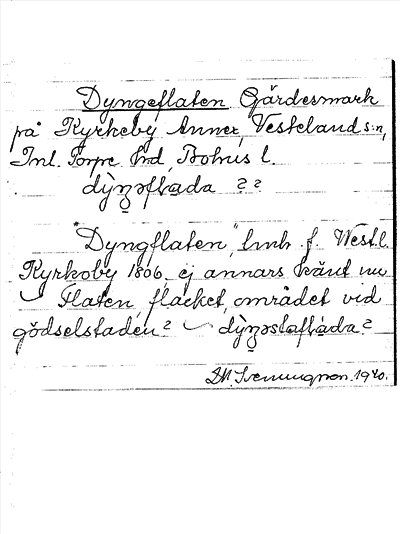 Dyngeflaten Gärdesmark
på Kyrkeby Annex, Vesteland s:n,
Inl. Torpe hd, Bohus l.
dỳŋəflàda ??
"Dyngflaten", lmh f. Westl.
Kyrkoby 1806, ej annars känt nu
Flaten, flacket, området vid
gödselstaden?
dỳŋəstaflàda?
1920.